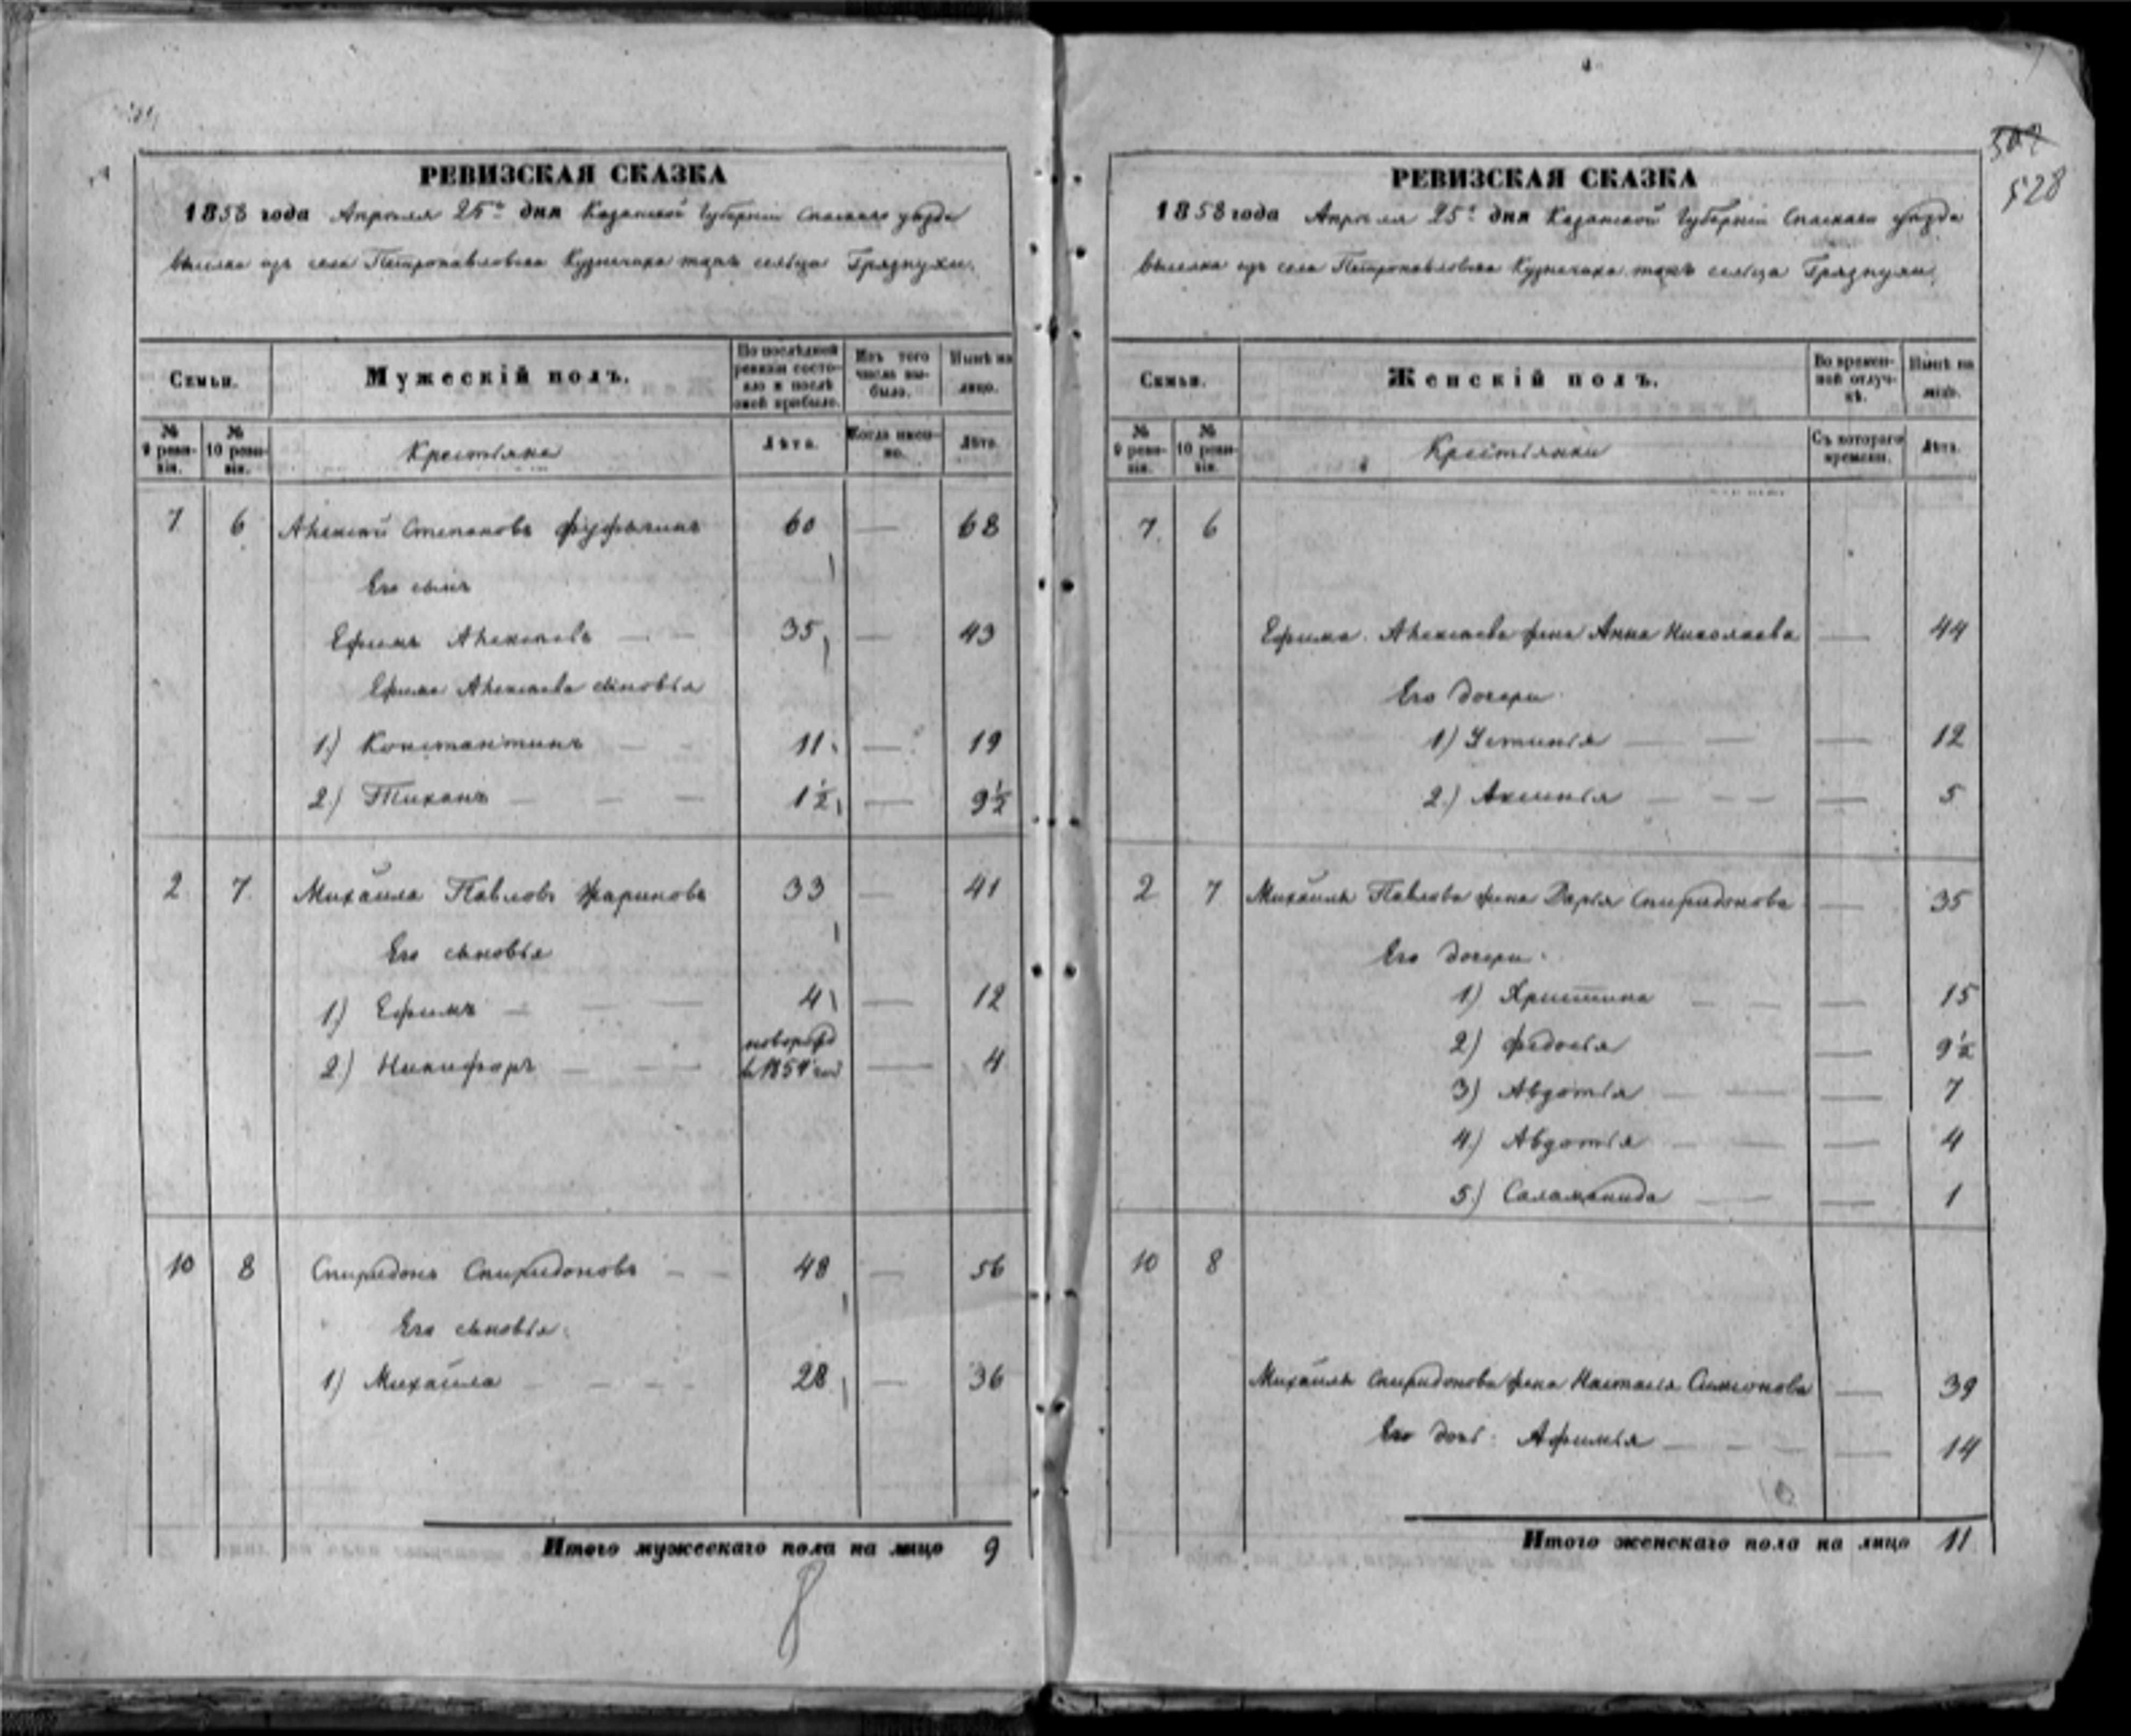 РЕВИЗСКАЯ СКАЗКА
1858 года Апреля 25го дня Казанской Губерніи Спаскаго уѣзда
выселка изъ села Петропавловска Кузнечиха тожъ сельца Грязнухи.
Семьи.
Мужескій полъ.
По послѣдней ревизіи состояло и послѣ оной прибыло.
Изъ того числа выбыло.
Нынѣ на лицо.
№ 9 ревизіи.
№ 10 ревизіи.
Крестьяне
Лѣта.
Когда именно.
Лѣта.
7 6 Алексей Степановъ 60 — 68
Его сынъ
Ефимъ Алексеевъ — — 35 — 43
Ефима Алексеева сыновья
1.) Константинъ — — 11 — 19
2.) Тихонъ — — — 1½ — 9½
2 7 Михайла Павловъ Жариновъ 33 — 41
Его сыновья
1) Ефимъ — — — 4 — 12
2.) Никифоръ — — новорожд в 1854 год — 4
10 8 Спиридонъ Спиридоновъ — — 48 — 56
Его сыновья.
1) Михайла — — — 28 — 36
Итого мужескаго пола на лицо 9
8
507
528
РЕВИЗСКАЯ СКАЗКА
1858 года Апреля 25го дня Казанской Губерніи Спаскаго уѣзда
выселка изъ села Петропавловска Кузнечиха тожъ сельца Грязнухи.
Семьи.
Женскій полъ.
Во временной отлучкѣ.
Нынѣ на лицо.
№ 9 ревизіи.
№ 10 ревизіи.
Крестьянки
Съ котораго времени.
Лѣта.
7. 6
Ефима Алексеева жена Анна Николаева — 44
Его дочери
1) Устинья — — — 12
2.) Аксинья — — — — 5
2 7 Михайлы Павлова жена Дарья Спиридонова — 35
Его дочери.
1) Христина — — — 15
2) Федосья — 9½
3) Авдотья — — — 7
4.) Авдотья — — — 4
5.) Саламанида — — — 1
10 8
Михайлы Спиридонова жена Настасья Симионова — 39
Его дочь. Афимья — — — — 14
Итого женскаго пола на лицо 11